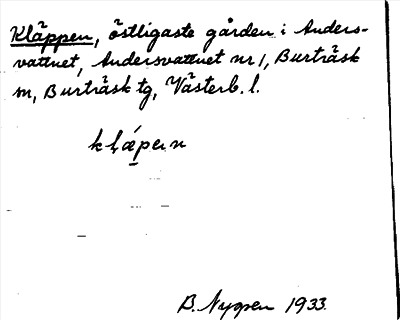 Kläppen, östligaste gården i Anders-
vattnet, Andersvattnet nr 1, Burträsk
sn, Burträsk tg, Västerb. l.
B. Nygren 1933.